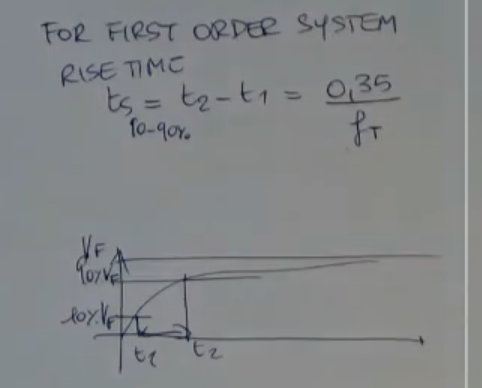 FOR FIRST ORDER SYSTEM
RISE TIME
ts = t2 - t1 = 0,35 / fT
10-90%
VF
90%VF
10%VF
t1 t2